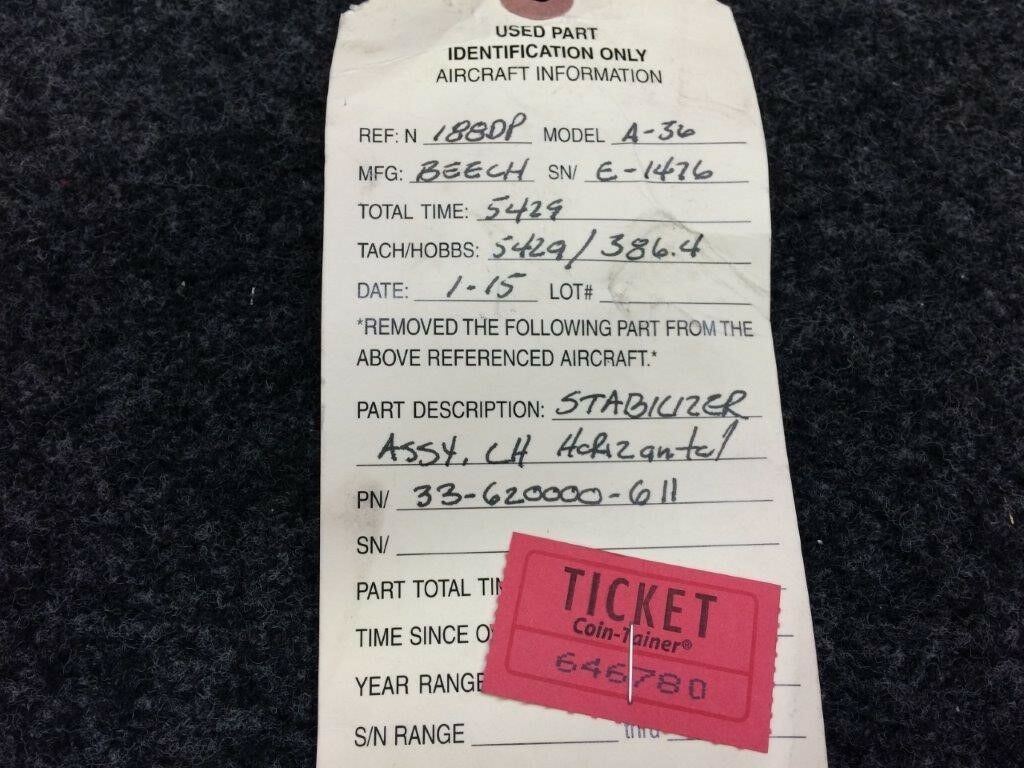 USED PART
IDENTIFICATION ONLY
AIRCRAFT INFORMATION
REF: N 188DP MODEL A-36
MFG: BEECH SN/ E-1476
TOTAL TIME: 5429
TACH/HOBBS: 5429/386.4
DATE: 1-15 LOT#
*REMOVED THE FOLLOWING PART FROM THE
ABOVE REFERENCED AIRCRAFT.*
PART DESCRIPTION: STABILIZER
ASSY, LH Horizontal
PN/ 33-620000-611
SN/
PART TOTAL TIM
TIME SINCE O
YEAR RANGE
S/N RANGE thru
TICKET
Coin-Tainer®
646780